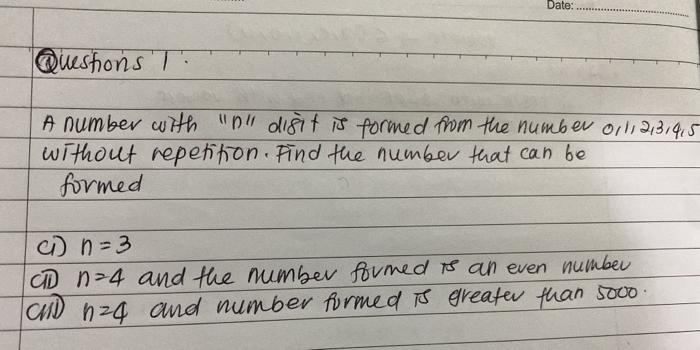 Date: ........................
Questions 1.
A number with "n" digit is formed from the number 0,1,2,3,4,5
without repetition. Find the number that can be
formed
(i) n=3
(ii) n=4 and the number formed is an even number
(iii) n=4 and number formed is greater than 5000.